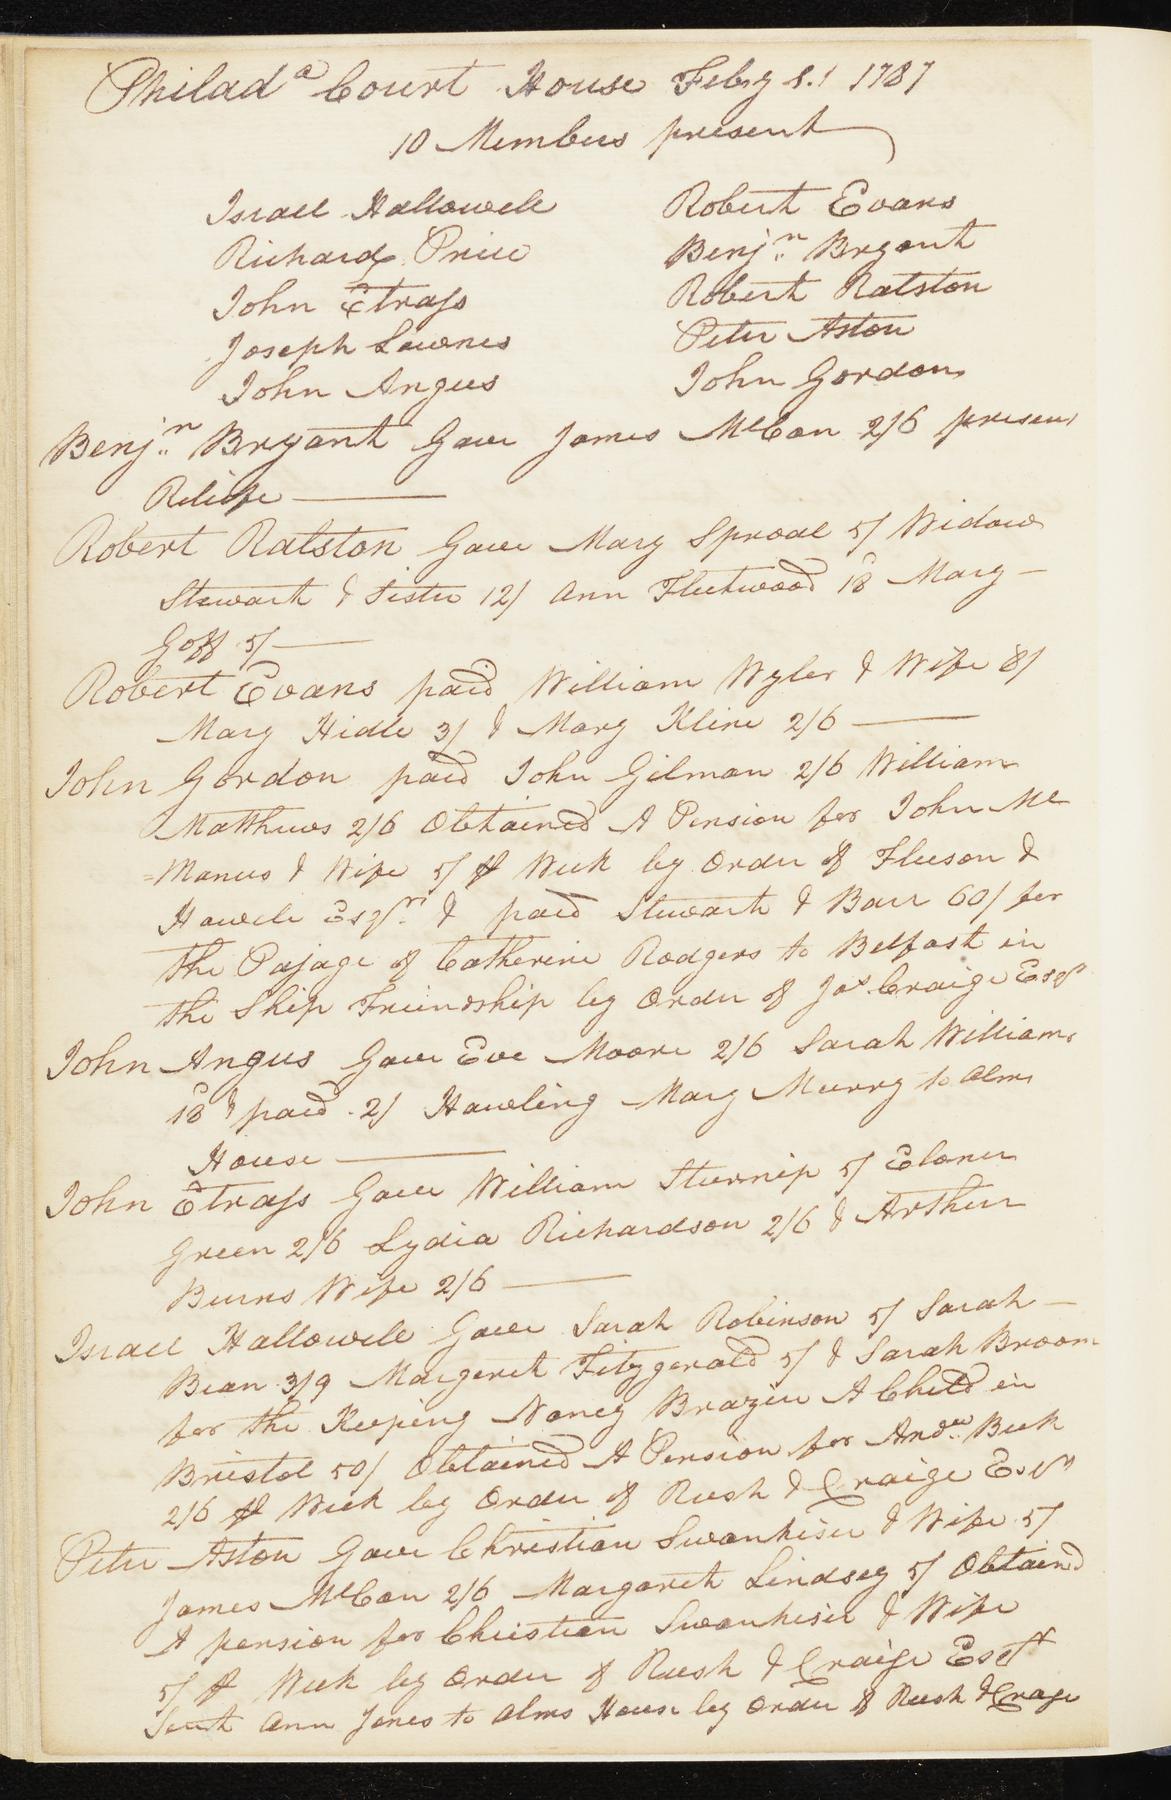 Philad.a Court House Feb.y 8.! 1787
10 Members present
Israel Hallowell Robert Evans
Richard Price Benj.n Bryant
John Strass Robert Ralston
Joseph Lownes Peter Aston
John Angus John Gordon
Benj.n Bryant Gave James McCan 2/6 present
Releife
Robert Ralston Gave Mary Sproal 5/ Widow
Stewart & Sister 12/ Ann Fleetwood 18 Mary
Goff 5/
Robert Evans paid William Wyler & Wife 8/
Mary Hidle 3/ & Mary Kline 2/6
John Gordon paid John Gilman 2/6 William
Matthews 2/6 Obtained A Pension for John Mc
=Manus & Wife 5/ ⅌ Week by Order of Fleeson &
Howell Esqrs & paid Stewart & Barr 60/ for
the Pasage of Catherine Rodgers to Belfast in
the Ship Friendship by Order of Jos Craige Esqr
John Angus Gave Eve Moore 2/6 Sarah Williams
18 & paid 2/ Hawling Mary Murry to Alms
House
John Strass Gave William Sturnip 5/ Eloner
Green 2/6 Lydia Richardson 2/6 & Arthur
Burns Wife 2/6
Israel Hallowell Gave Sarah Robinson 5/ Sarah
Bean 3/9 Margeret Fitzgerald 5/ & Sarah Broom
for the Keeping Nancy Brazen A Child in
Bristol 50/ Obtained A Pension for Andw Beek
2/6 ⅌ Week by Order of Rush & Craige Esqrs
Peter Aston Gave Christian Swanhiser & Wife 5/
James McCan 2/6 Margaret Lindsey 5/ Obtaind
A pension for Christian Swanhiser & Wife
5/ ⅌ Week by Order of Rush & Craige Esqrs
Sent Ann Jones to Alms House by Order of Rush & Crage